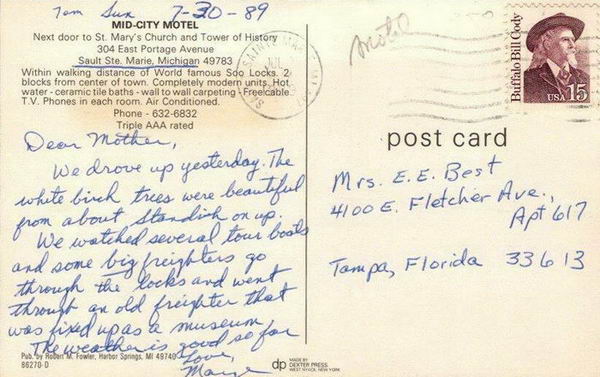 7-30-89
MID-CITY MOTEL
Next door to St. Mary's Church and Tower of History
304 East Portage Avenue
Sault Ste. Marie, Michigan 49783
Within walking distance of World famous Soo Locks. 2
blocks from center of town. Completely modern units. Hot
water - ceramic tile baths - wall to wall carpeting - Free cable
T.V. Phones in each room. Air Conditioned.
Phone - 632-6832
Triple AAA rated
Dear Mother,
We drove up yesterday. The
white birch trees were beautiful
from about Standish on up.
We watched several tour boats
and some big freighters go
through the locks and went
through an old freighter that
was fixed up as a museum.
The weather is good so far
Love,
Marge
Pub. by Robert M. Fowler, Harbor Springs, MI 49740
86270-D
dp
MADE BY
DEXTER PRESS
WEST NYACK, NEW YORK
motel
Buffalo Bill Cody
USA 15
post card
Mrs. E. E. Best
4100 E. Fletcher Ave.,
Apt 617
Tampa, Florida 33613